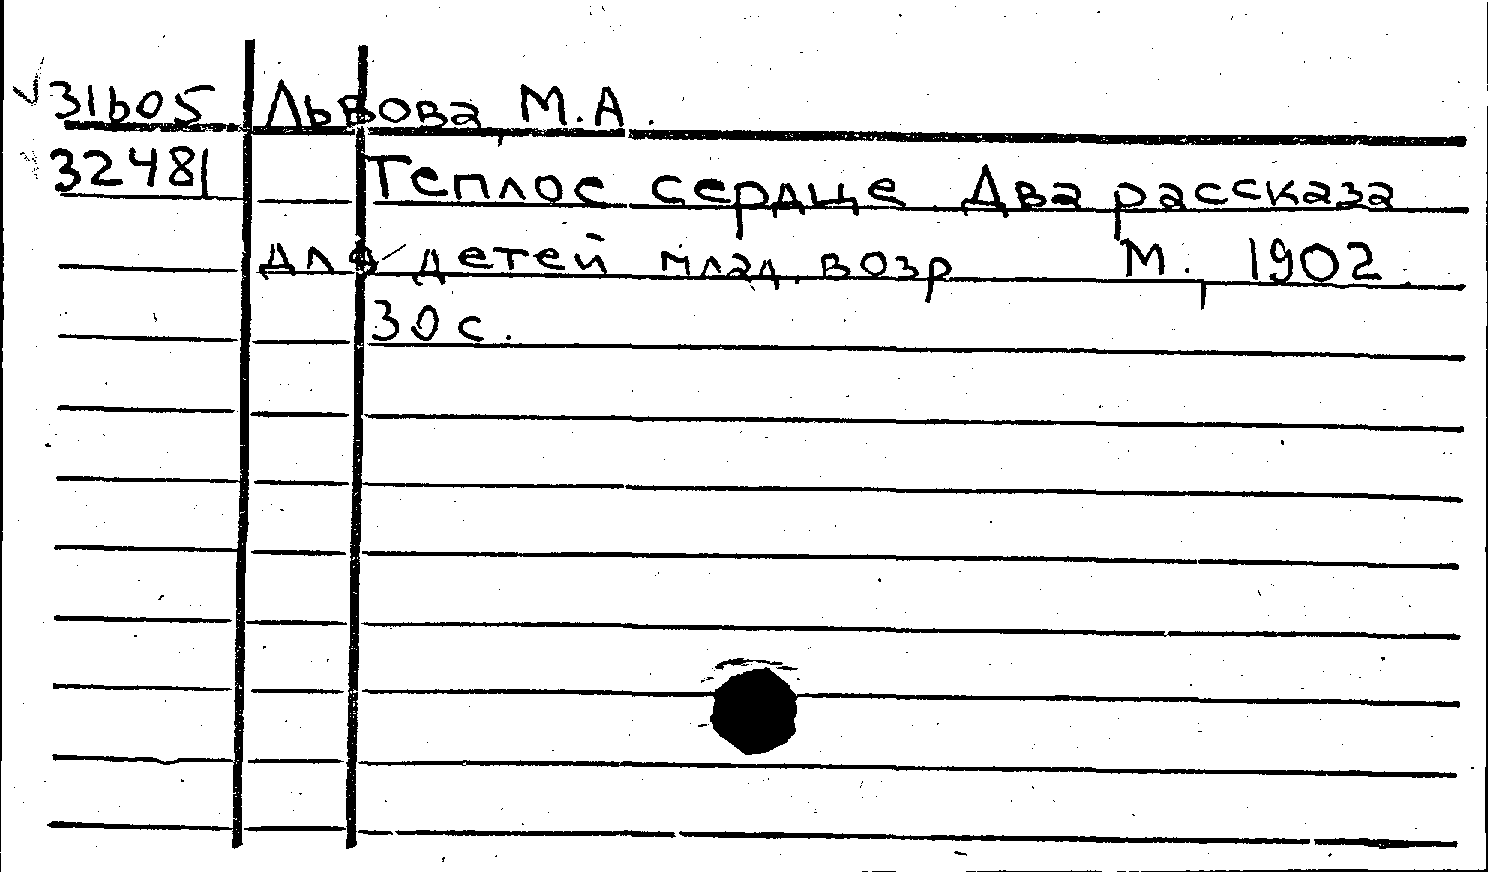 31605 Львова, М.А.
32481 Теплое сердце. Два рассказа
для детей млад. возр М., 1902.
30 с.